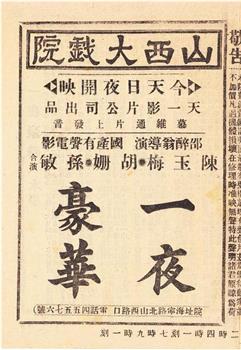 山西大戲院
今天日夜開映
天一影片公司出品
慕維通片上發音
邵醉翁導演 國產有聲電影
陳玉梅·胡珊·孫敏 合演
一夜
豪華
院址海寧路北山西路口 電話四五五七六號
敬告
二時四時一刻七時九時一刻